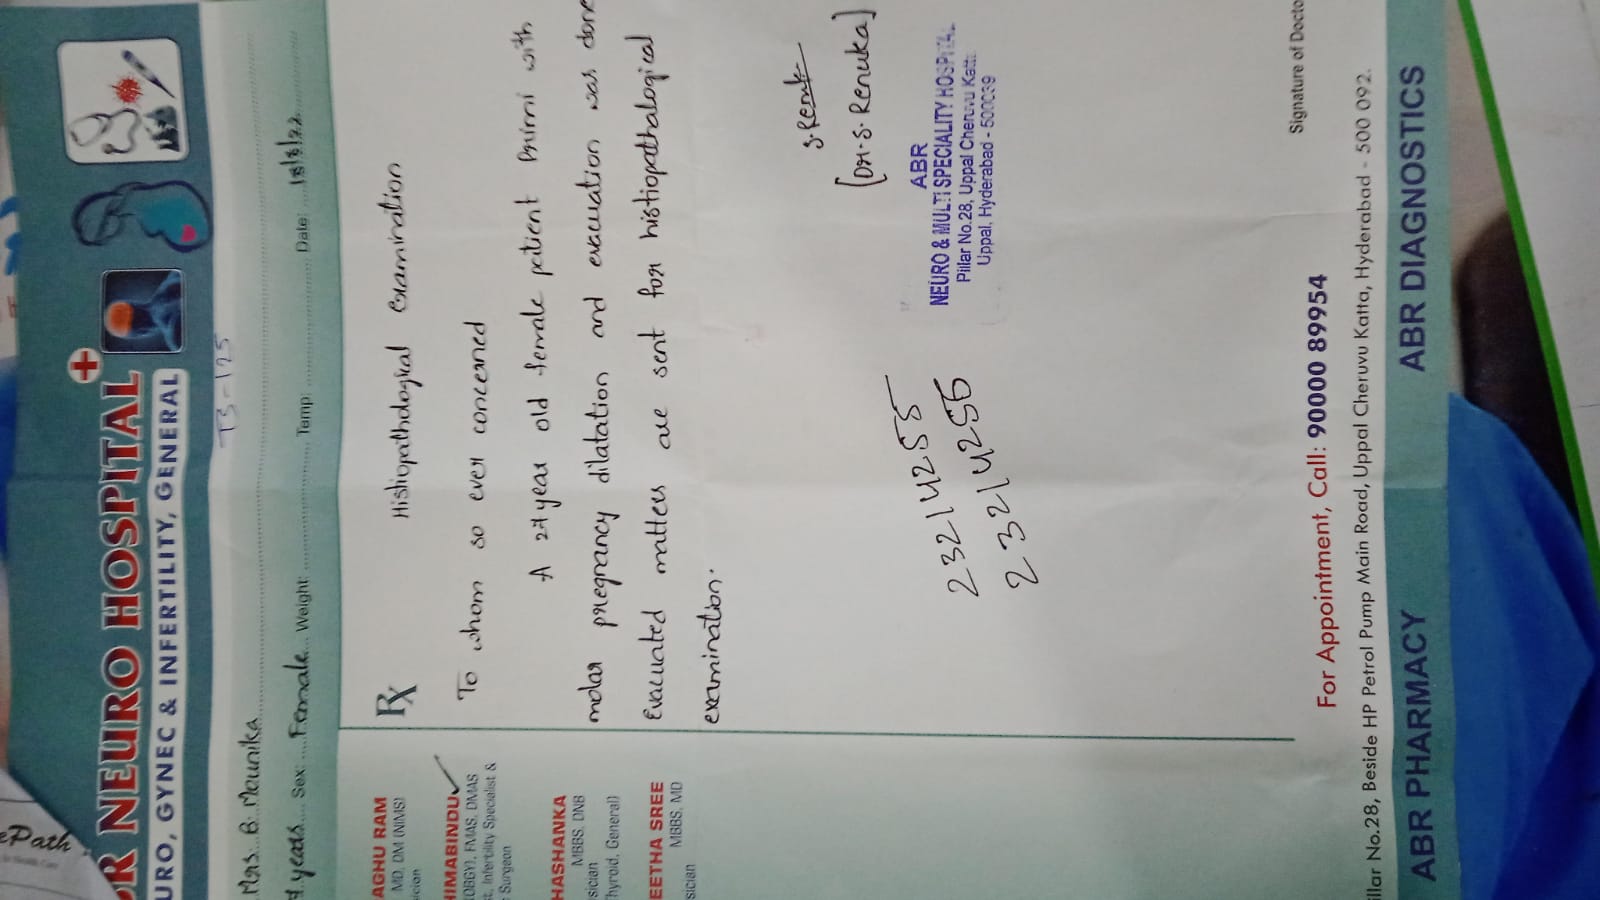 ePath
OR NEURO HOSPITAL
URO, GYNEC & INFERTILITY, GENERAL
T3-125
Mrs. B. Mounika
years Sex: Female Weight: Temp: Date: 18/8/22
AGHU RAM
MD, DM (NIMS)
ician
HIMABINDU
(OBGY), FMAS, DMAS
st, Infertility Specialist &
Surgeon
HASHANKA
MBBS, DNB
sician
hyroid, General)
EETHA SREE
MBBS, MD
sician
Rx
Histiopathological Examination
To whom so ever concerned
A 27 year old female patient Primi with
molar pregnancy dilatation and evacuation was done
Evacuated matters are sent for histiopathalogical
examination.
S. Renuka
[Dr. S. Renuka]
ABR
NEURO & MULTI SPECIALITY HOSPITAL
Pillar No.28, Uppal Cheruvu Katta
Uppal, Hyderabad - 500039
23214255
23214256
Signature of Docto
For Appointment, Call: 90000 89954
illar No.28, Beside HP Petrol Pump Main Road, Uppal Cheruvu Katta, Hyderabad - 500 092.
ABR PHARMACY
ABR DIAGNOSTICS